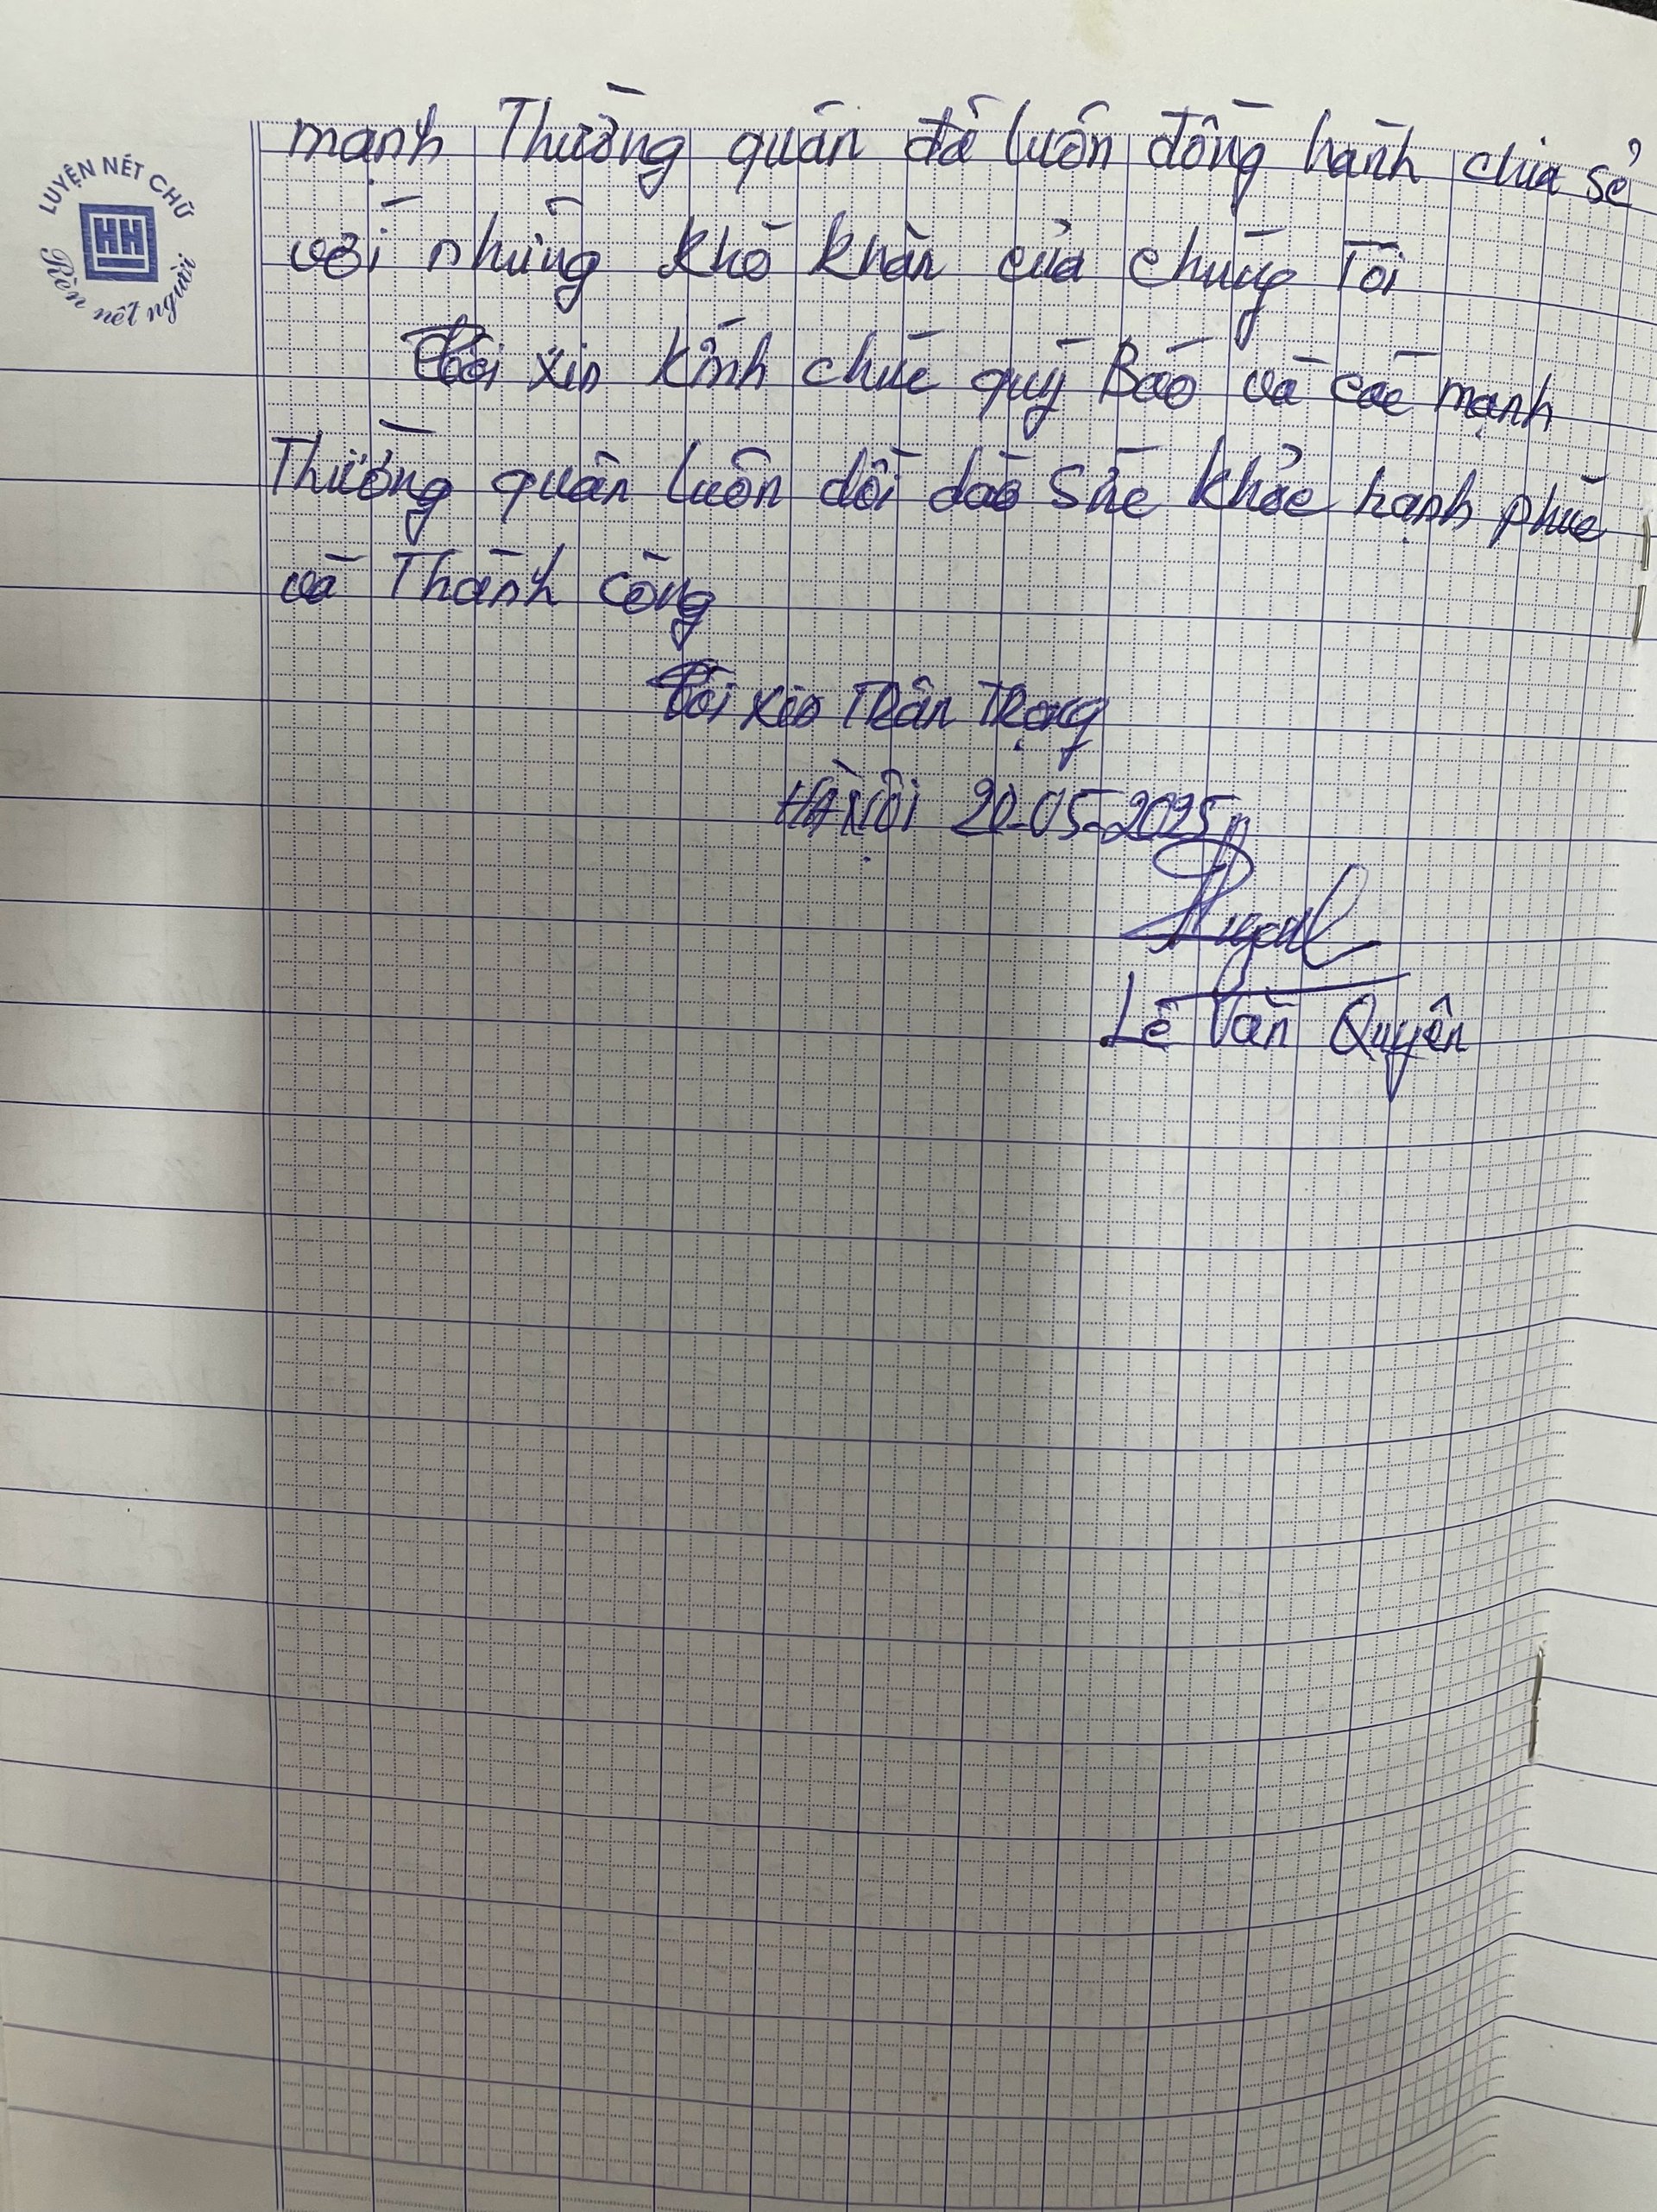 LUYỆN NÉT CHỮ
HH
Rèn nết người
mạnh Thường quân đã luôn đồng hành chia sẻ
với những khó khăn của chúng Tôi
Tôi xin kính chúc quý Báo và các mạnh
Thường quân luôn dồi dào sức khỏe hạnh phúc
và Thành công
Tôi xin Trân Trọng
HÀ Nội 20-05-2025
Lê Văn Quyên